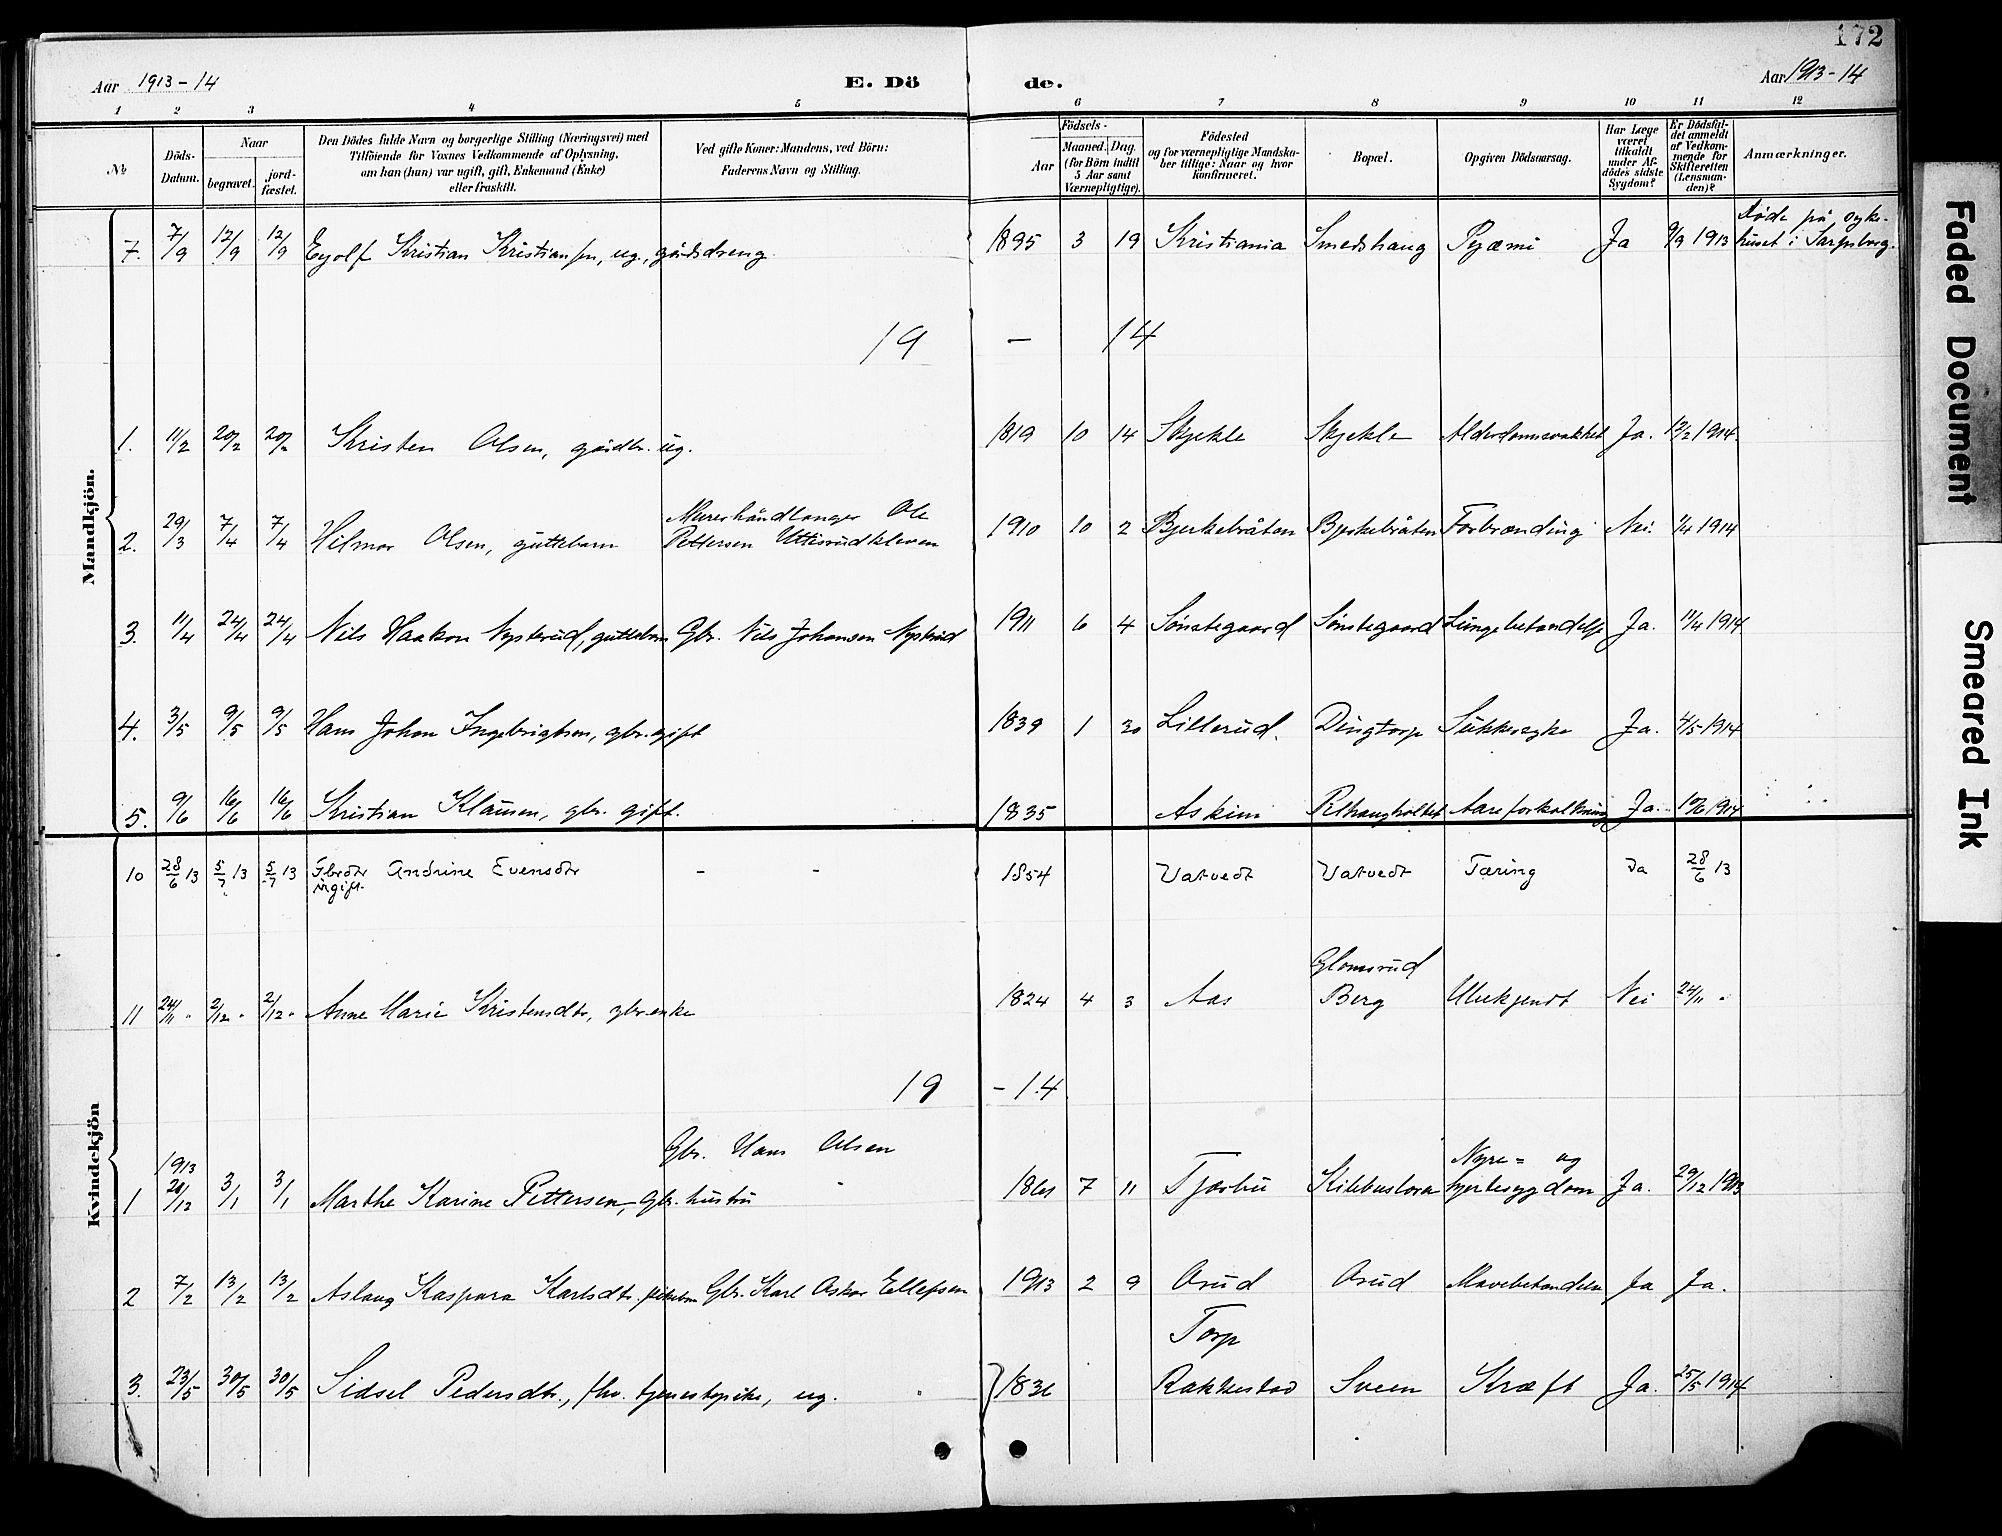 172
Aar 1913-14 E. Dö de. Aar 1913-14
1 2 3 4 5 6 7 8 9 10 11 12
No
Döds-Datum.
Naar
begravet. jordfæstet.
Den Dödes fulde Navn og borgerlige Stilling (Næringsvei) med
Tilföiende for Voxnes Vedkommende af Oplysning,
om han (hun) var ugift, gift, Enkemand (Enke)
eller fraskilt.
Ved gifte Koner: Mandens, ved Börn:
Faderens Navn og Stilling.
Födsels-
Aar
Maaned. Dag.
(for Börn indtil
5 Aar samt
Værnepligtige).
Födested
og for værnepligtige Mandskaber tillige: Naar og hvor
konfirmeret.
Bopæl.
Opgiven Dödsaarsag.
Har Læge
været
tilkaldt
under Afdödes sidste
Sygdom?
Er Dödsfaldet anmeldt
af Vedkommende for
Skifteretten
(Lensmanden)?
Anmærkninger.
Mandkjön.
7. 7/9 12/9 12/9 Eyolf Kristian Kristiansen, ug., gårdsdreng 1895 3 19 Kristiania Smedshaug Pyæmi Ja 9/9 1913 Døde på sykehuset i Sarpsborg.
19 - 14
1. 11/2 20/2 20/2 Kristen Olsen, gårdbr. ug. 1819 10 14 Skjekle Skjekle Alderdomssvakhet Ja. 12/2 1914.
2. 29/3 7/4 7/4 Hilmar Olsen, guttebarn Murerhåndlanger Ole Pettersen 1910 10 2 Bjerkebråten Bjerkebråten Forbrænding Nei. 1/4 1914
3. 11/4 24/4 24/4 Nils Haakon Nysterud, guttebarn Gbr. Nils Johansen Nysterud 1911 6 4 Sønstegaard Sønstegaard Lungebetændelse Ja. 11/4 1914
4. 3/5 9/5 9/5 Hans Johan Ingebrigtsen, gbr. gift 1839 1 20 Lillerud. Dingtorp Sukkersyke Ja. 4/5 1914
5. 9/6 16/6 16/6 Kristian Klausen, gbr. gift. 1835 Askim Aareforkalkning Ja. 10/6 1914
Kvindekjön
10 28/6 13 5/7 13 5/7 13 Gbrdtr Andrine Evensdtr ugift. - - 1854 Vatvedt Vatvedt Tæring Ja 28/6 13
11 24/11 " 2/12 " 2/12 " Anne Marie Kristensdtr, gbr. enke 1824 4 3 Aas Glomsrud Berg Ubekjendt Nei 24/11 "
19 - 14
1 1913 20/12 3/1 3/1 Marthe Karine Pettersen, Gbr. hustru Gbr. Hans Olsen 7 11 Tjærbu Nyre- og hjertesygdom Ja. 29/12 1913
2 7/2 13/2 13/2 Aslaug Kaspara Karlsdtr. pikebn Gbr. Karl Oskar Ellefsen 1913 2 9 Orud Orud Mavebetændelse Ja Ja.
3. 23/5 30/5 30/5 Sidsel Pedersdtr., fhv. tjenestepike, ug. " 1836 Torp Rakkestad Sveen Kræft Ja. 25/5 1914
Faded Document
Smeared Ink